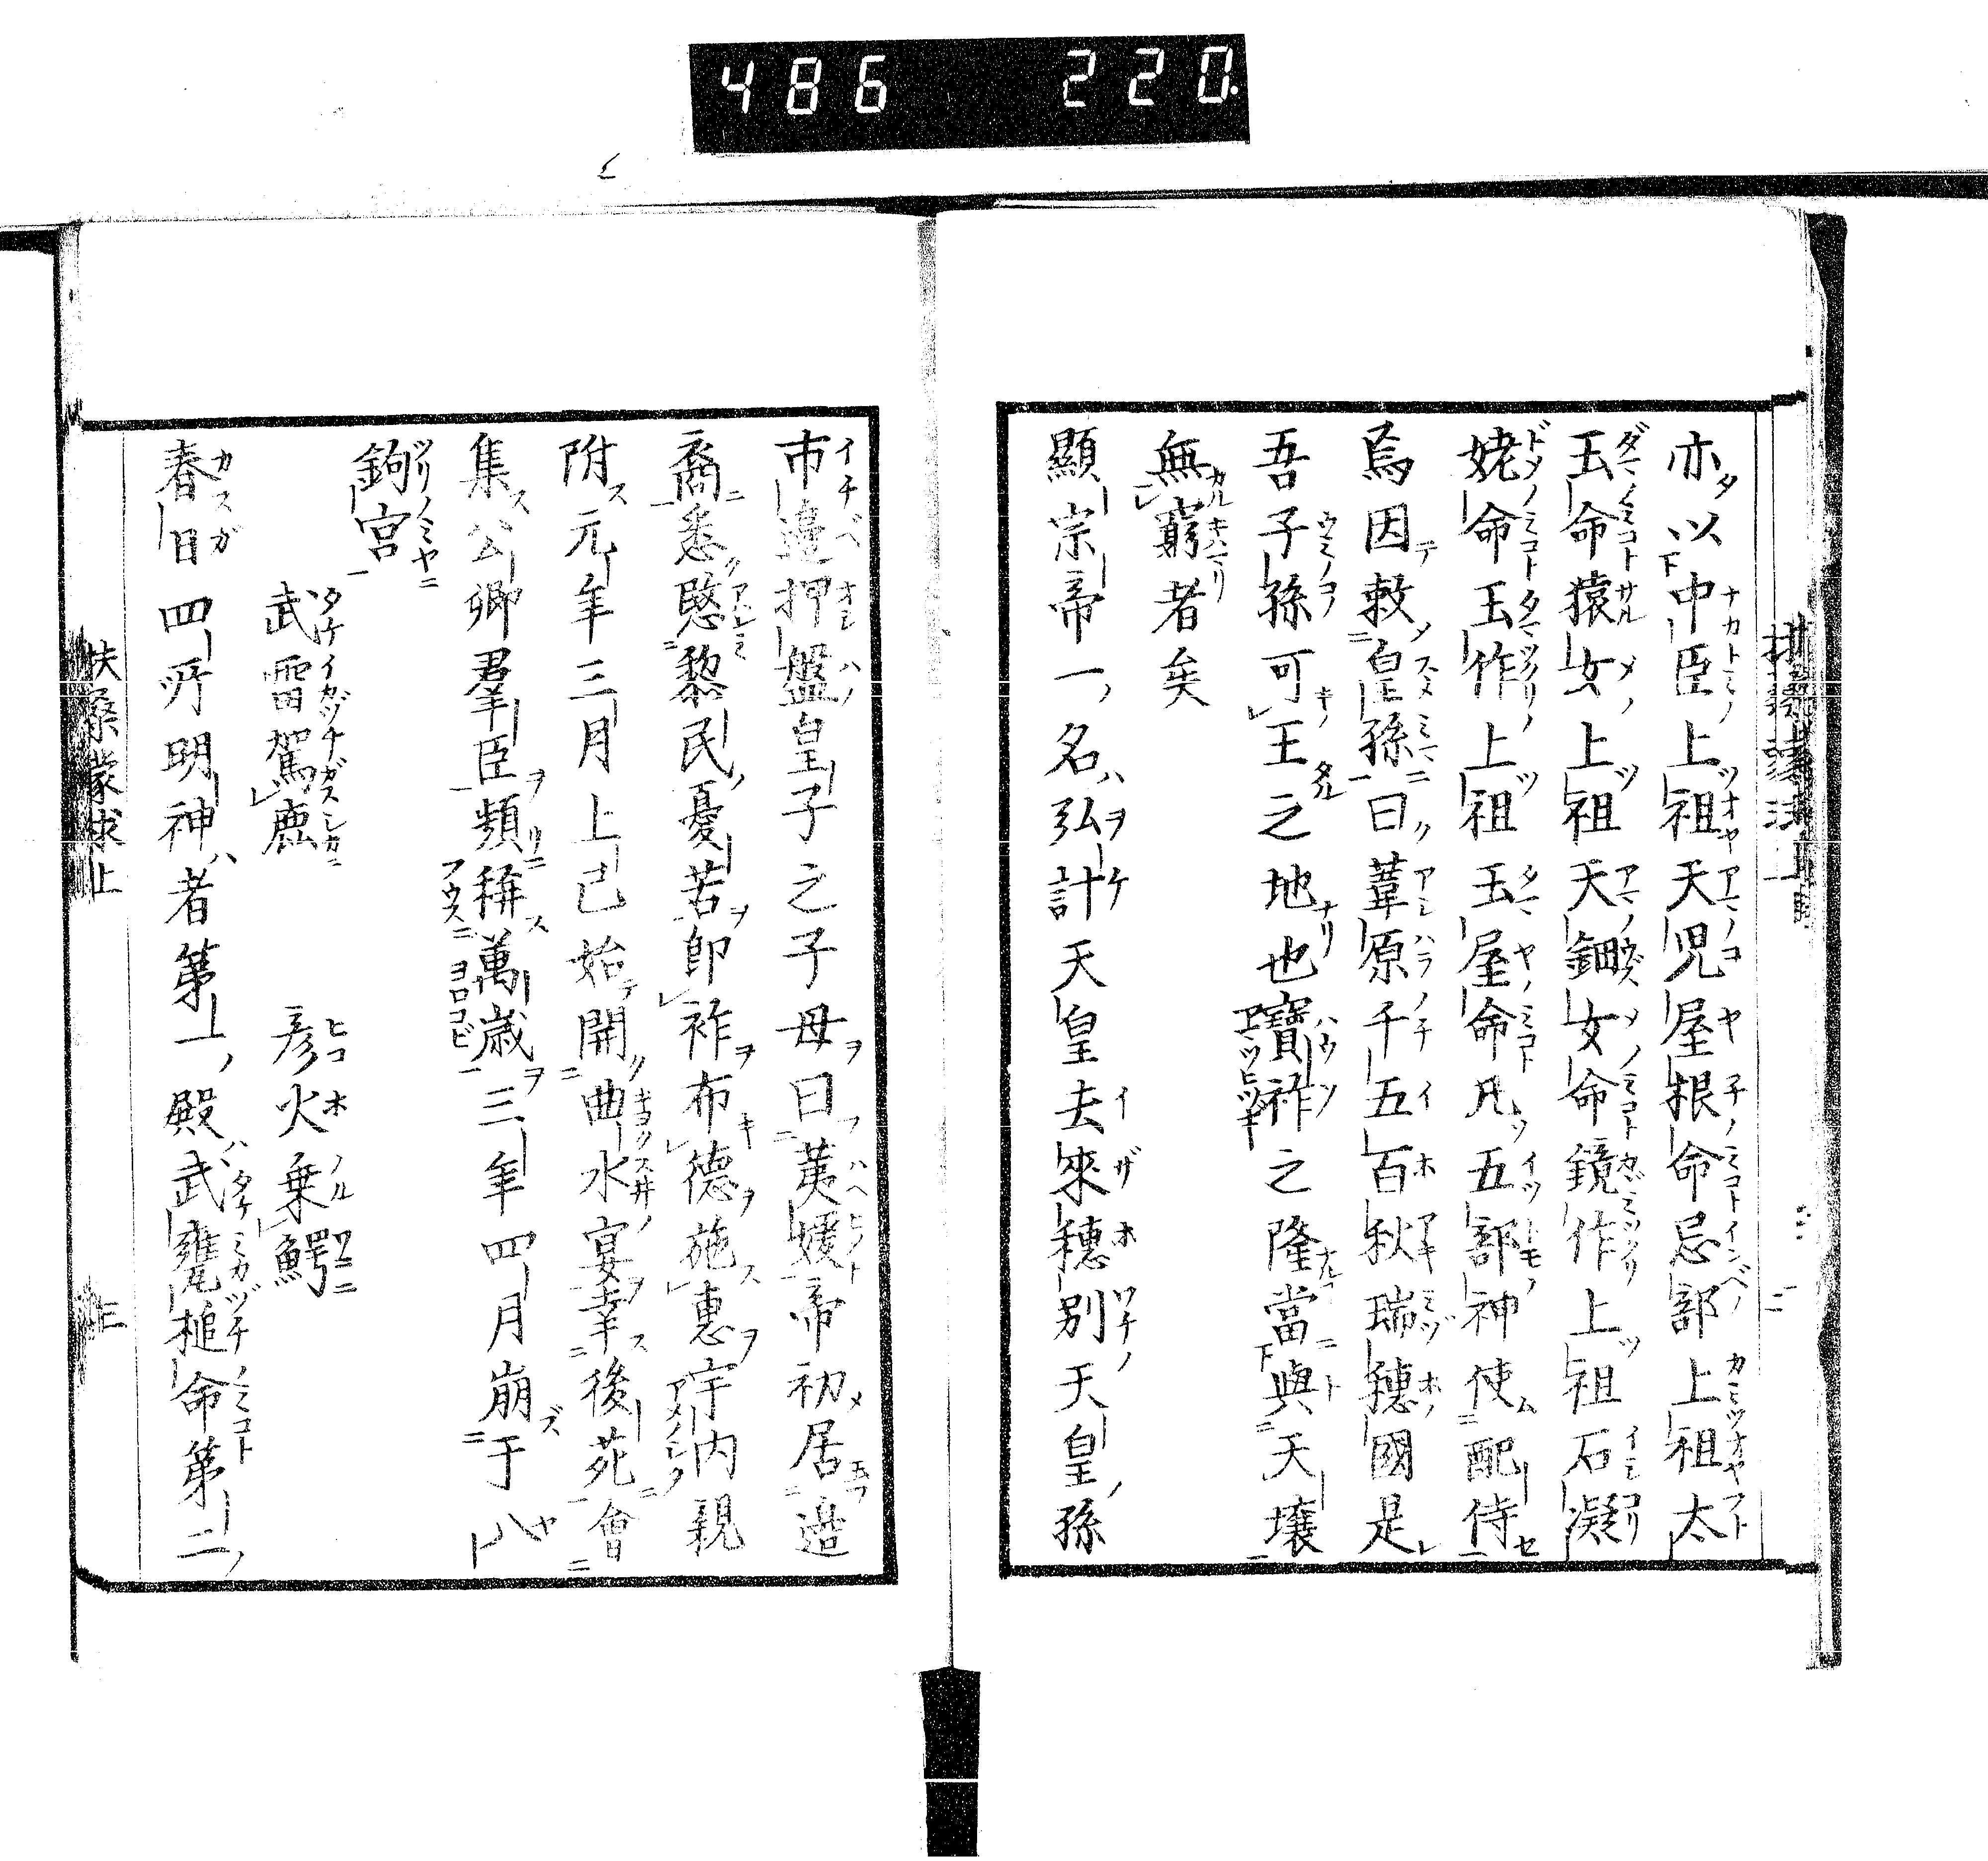 486 220.
亦以中臣上祖天児屋根命忌部上祖太
玉命猿女上祖天鈿女命鏡作上祖石凝
姥命玉作上祖玉屋命凡五部神使配侍
焉因敕皇孫曰葦原千五百秋瑞穗國是
吾子孫可王之地也寶祚之隆當與天壤
無窮者矣
顯宗帝一名弘計天皇去來穗別天皇孫
市邊押盤皇子之子母曰荑媛帝初居邊
裔悉愍黎民憂苦即祚布德施惠宇内親
附元年三月上巳始開曲水宴幸後苑會
集公卿羣臣頻稱萬歳三年四月崩于八
鉤宮
武雷駕鹿 彦火乗鰐
春日四所明神者第一殿武甕槌命第二
扶桑蒙求上 三